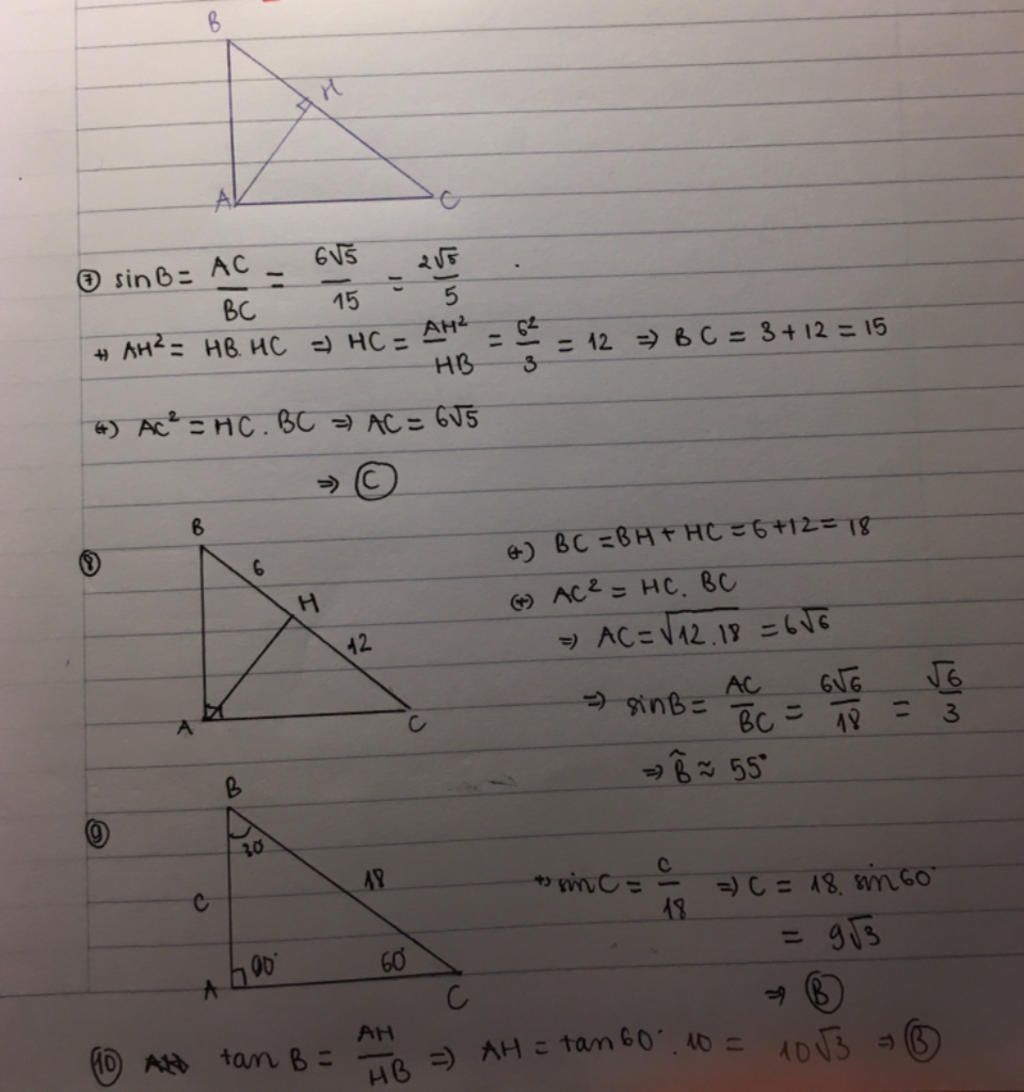 B
H
A
C
⑦ sinB = AC/BC = 6√5/15 = 2√5/5
+) AH² = HB.HC ⇒ HC = AH²/HB = 6²/3 = 12 ⇒ BC = 3+12 = 15
+) AC² = HC.BC ⇒ AC = 6√5
⇒ Ⓒ
⑧
B
6
H
12
A
C
+) BC = BH + HC = 6+12 = 18
+) AC² = HC.BC
⇒ AC = √12.18 = 6√6
⇒ sinB = AC/BC = 6√6/18 = √6/3
⇒ B̂ ≈ 55°
⑨
B
30°
18
C
90°
60°
A
C
+) sinC = c/18 ⇒ C = 18.sin60°
= 9√3
⇒ Ⓑ
⑩ tan B = AH/HB ⇒ AH = tan60°.10 = 10√3 ⇒ Ⓑ